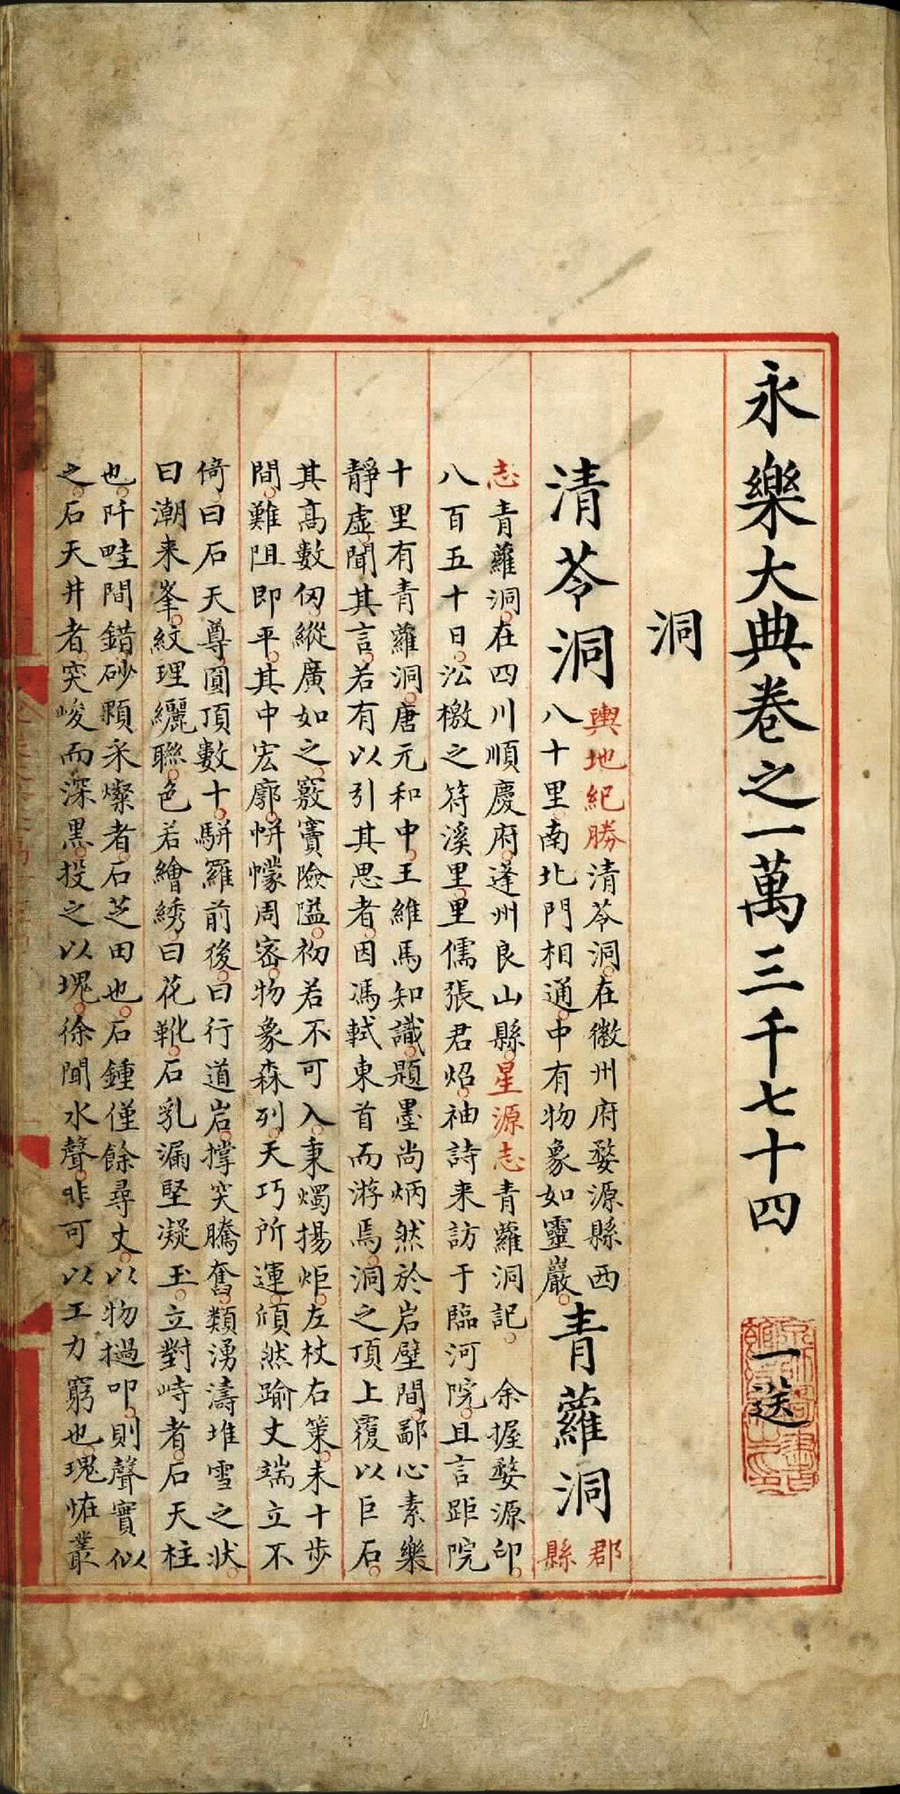 永樂大典卷之一萬三千七十四 一送
洞
清苓洞
輿地紀勝清苓洞在徽州府婺源縣西
八十里南北門相通中有物象如靈巖
青蘿洞
郡
縣
志青蘿洞在四川順慶府蓬州良山縣星源志青蘿洞記 余握婺源印
八百五十日㳂檄之符溪里里儒張君炤袖詩来訪于臨河院且言距院
十里有青蘿洞唐元和中王維馬知識題墨尚炳然於岩壁間鄙心素樂
靜虚聞其言若有以引其思者因馮軾東首而游焉洞之頂上覆以巨石
其高數仭縱廣如之竅竇險隘初若不可入秉燭揚炬左杖右策未十步
間難阻即平其中宏廓帡幪周宻物象森列天巧所運頎然踰丈端立不
倚曰石天尊圓頂數十駢羅前後曰行道岩撑突騰奮類湧濤堆雪之状
曰潮来峯紋理纚聯色若繪綉曰花靴石乳漏堅凝玉立對峙者石天柱
也阡畦間錯砂顆采燦者石芝田也石鍾僅餘尋丈以物撾叩則聲實似
之石天井者突峻而深黒投之以塊徐聞水聲非可以工力窮也瑰恠叢